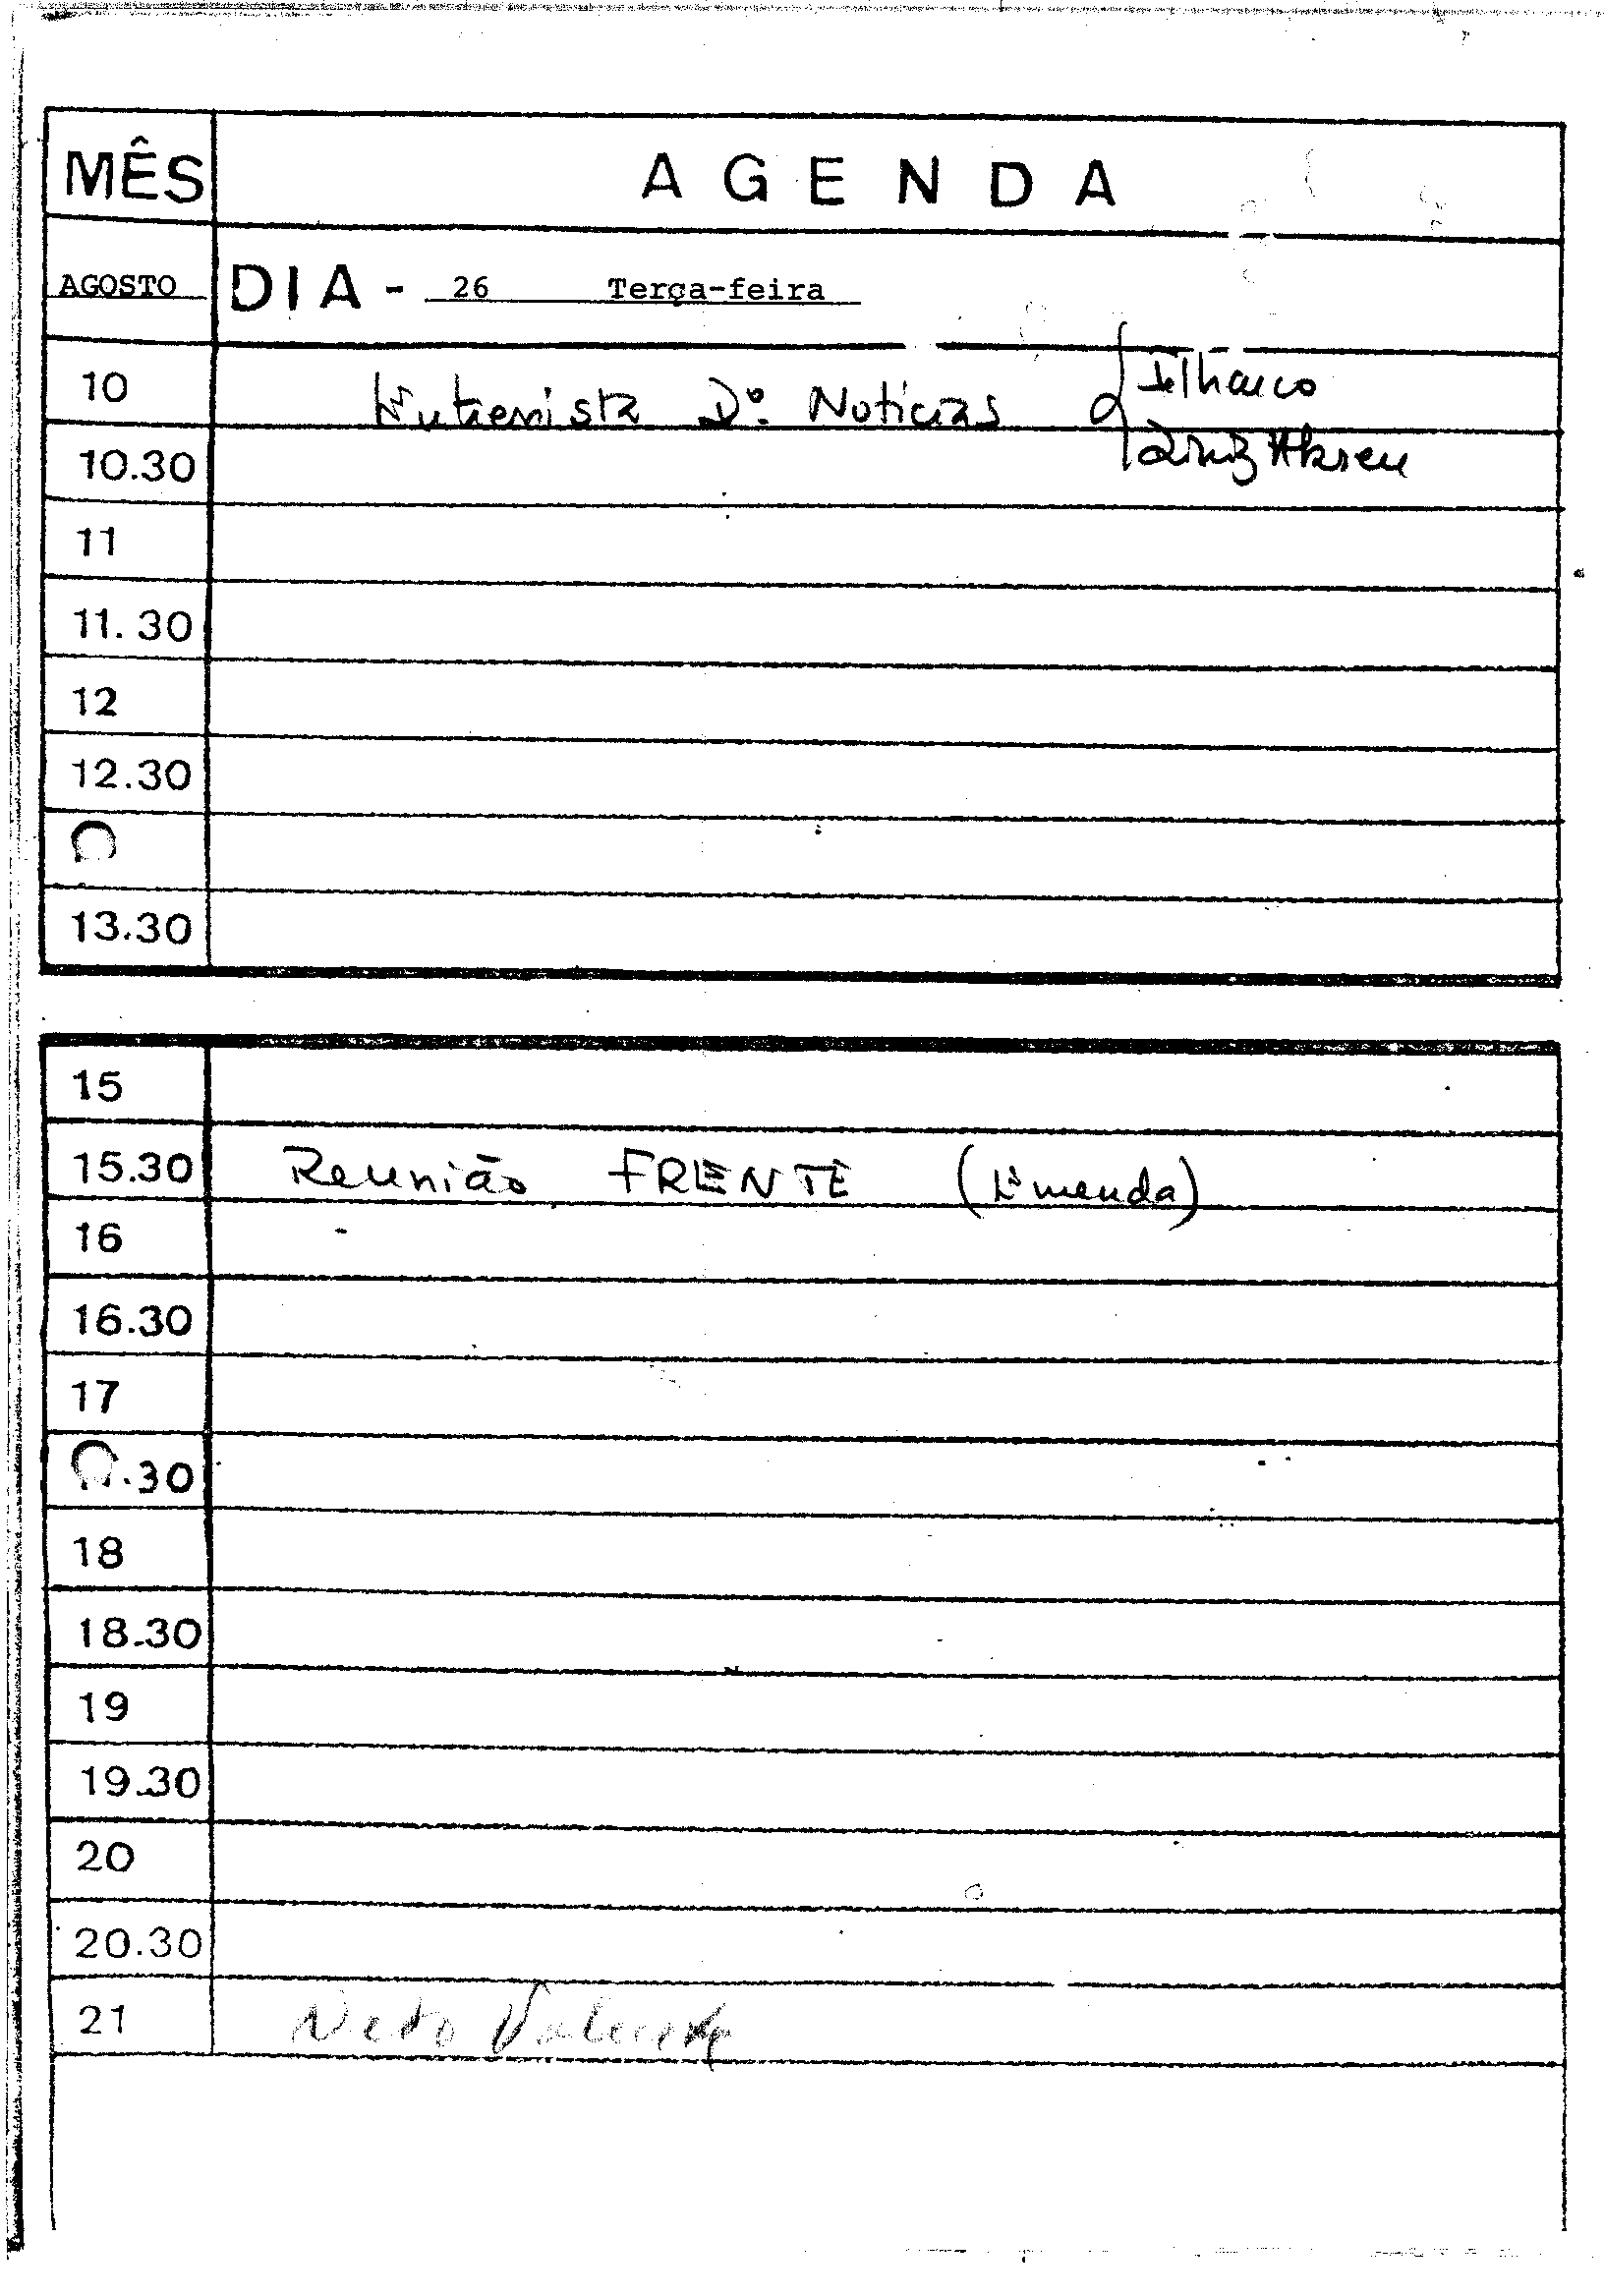 MÊS AGENDA
AGOSTO DIA - 26 Terça-feira
10 Entrevista Dº. Notícias Ilharco
10.30 Diniz Abreu
11
11.30
12
12.30
13.30
15
15.30 Reunião FRENTE (Emenda)
16
16.30
17
.30
18
18.30
19
19.30
20
20.30
21 Neto Valente